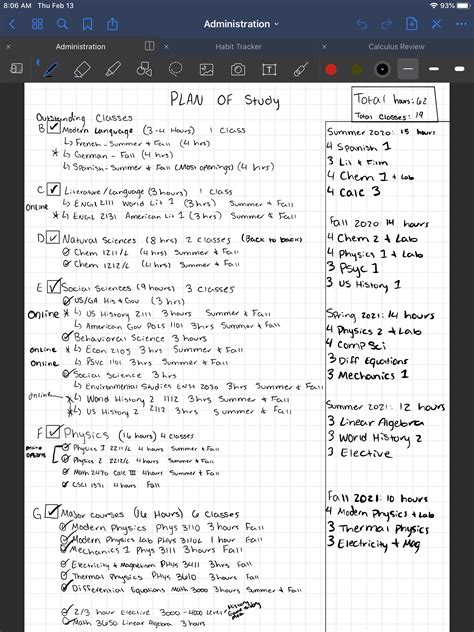 8:06 AM Thu Feb 13
93%
Administration
Administration
Habit Tracker
Calculus Review
PLAN OF Study
Total hours: 62
Total Classes: 19
Outstanding Classes
B Modern Language (3-4 Hours) 1 Class
↳ French - Summer & Fall (4 hrs)
* ↳ German - Fall (4 hrs)
↳ Spanish - Summer & Fall (Most openings) (4 hrs)
C. Literature/Language (3 hours) 1 Class
Online ↳ ENGL 2111 World Lit 1 (3 hrs) Summer & Fall
* ↳ ENGL 2131 American Lit 1 (3 hrs) Summer & Fall
D Natural Sciences (8 hrs) 2 Classes (Back to back)
Chem 1211/L (4 hrs) Summer & Fall
Chem 1212/L (4 hrs) Summer & Fall
E Social Sciences (9 hours) 3 Classes
US/GA His & Gov (3 hrs)
Online * ↳ US History 2111 3 hours Summer & Fall
↳ American Gov POLS 1101 3hrs Summer & Fall
Behavioral Science 3 hours
online * ↳ Econ 2105 3 hrs Summer & Fall
Online ↳ Psyc 1101 3 hrs Summer & Fall
Social Science 3 hrs
↳ Environmental Studies ENST 2030 3hrs Summer & Fall
online * ↳ World History 2 1112 3 hrs Summer & Fall
* ↳ US History 2 2112 3 hrs Summer & Fall
F Physics (16 hours) 4 classes
online options Physics 1 2211/L 4 hours Summer & Fall
Physics 2 2212/L 4 hours Summer & Fall
Math 2470 Calc III 4 hours Summer & Fall
CSCI 1371 4 hours Fall
G Major courses (16 Hours) 6 Classes
Modern Physics Phys 3110 3 hours Fall
Modern Physics Lab Phys 3110L 1 hour Fall
Mechanics 1 Phys 3111 3 hours Fall
Electricity & Magnetism Phys 3411 3hrs Fall
Thermal Physics Phys 3610 3 hours Fall
Differential Equations Math 3000 3 hours Summer & Fall
2/3 hour Elective 3000-4000 Level History
Math 3650 Linear Algebra 3 hours
Summer 2020: 15 hours
4 Spanish 1
3 Lit & Film
4 Chem 1 + Lab
4 Calc 3
Fall 2020: 14 hours
4 Chem 2 + Lab
4 Physics 1 + Lab
3 Psyc 1
3 US History 1
Spring 2021: 14 hours
4 Physics 2 + Lab
4 Comp Sci
3 Diff Equations
3 Mechanics 1
Summer 2021: 12 hours
3 Linear Algebra
3 World History 2
3 Elective
Fall 2021: 10 hours
4 Modern Physics + Lab
3 Thermal Physics
3 Electricity + Mag